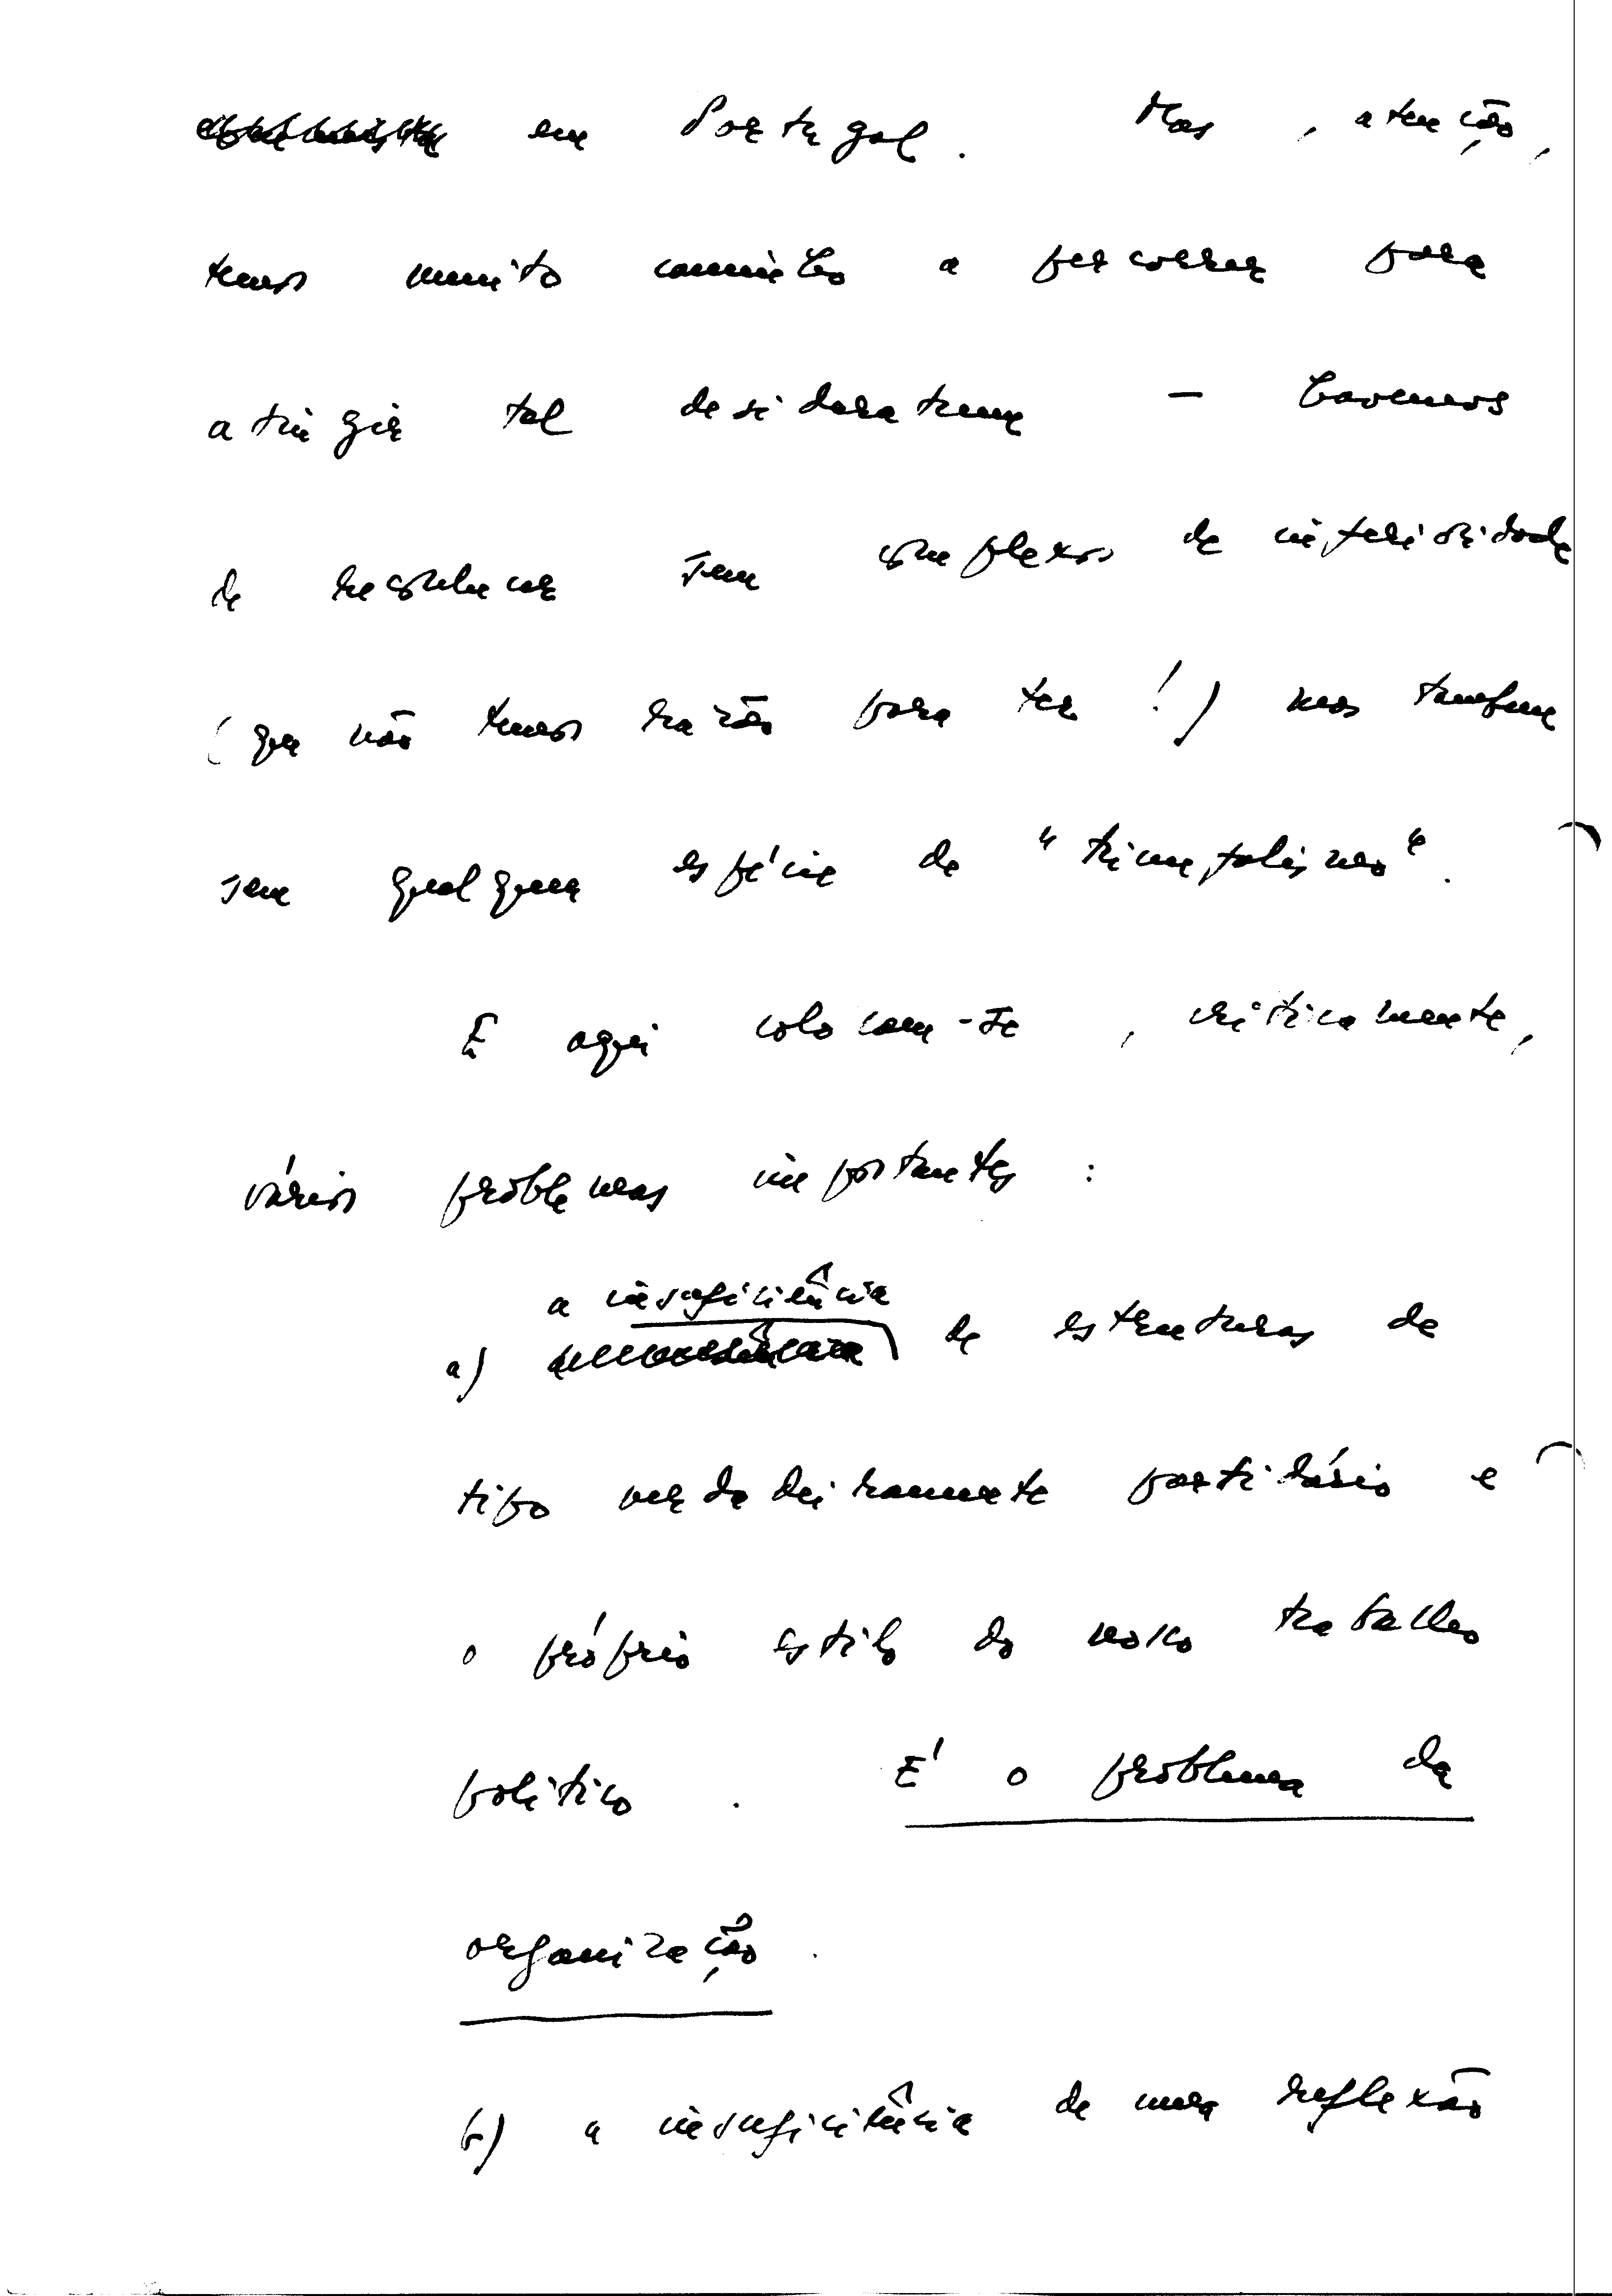 em Portugal. Mas, atenção,
temos muito caminho a percorrer para
atingir tal desideratum — havemos
de reconhecer sem complexos de inferioridade
(que não temos razão para ter!) mas também
sem qualquer espécie de "triunfalismo".
E aqui colocam-se, criticamente,
vários problemas importantes:
a insuficiência
a) de estruturas de
tipo verdadeiramente partidário e
o próprio estilo do nosso trabalho
político. É o problema da
organização.
b) a insuficiência de uma reflexão